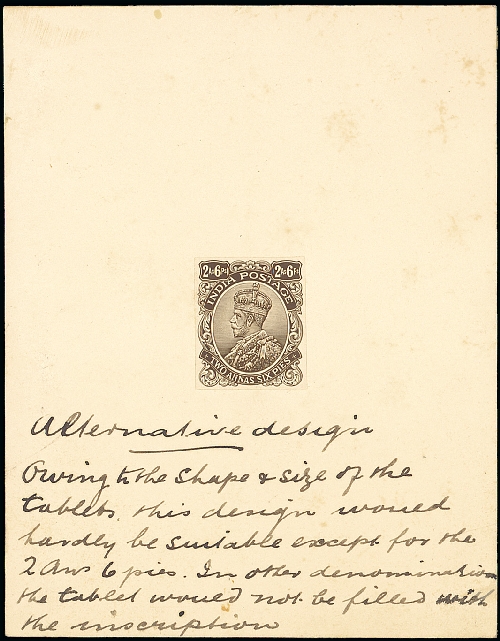 2As6Ps 2As6Ps
INDIA POSTAGE
TWO ANNAS SIX PIES
Alternative design
Owing to the shape & size of the
tablets, this design would
hardly be suitable except for the
2 Ans 6 pies. In other denominations
the tablet would not be filled with
the inscription